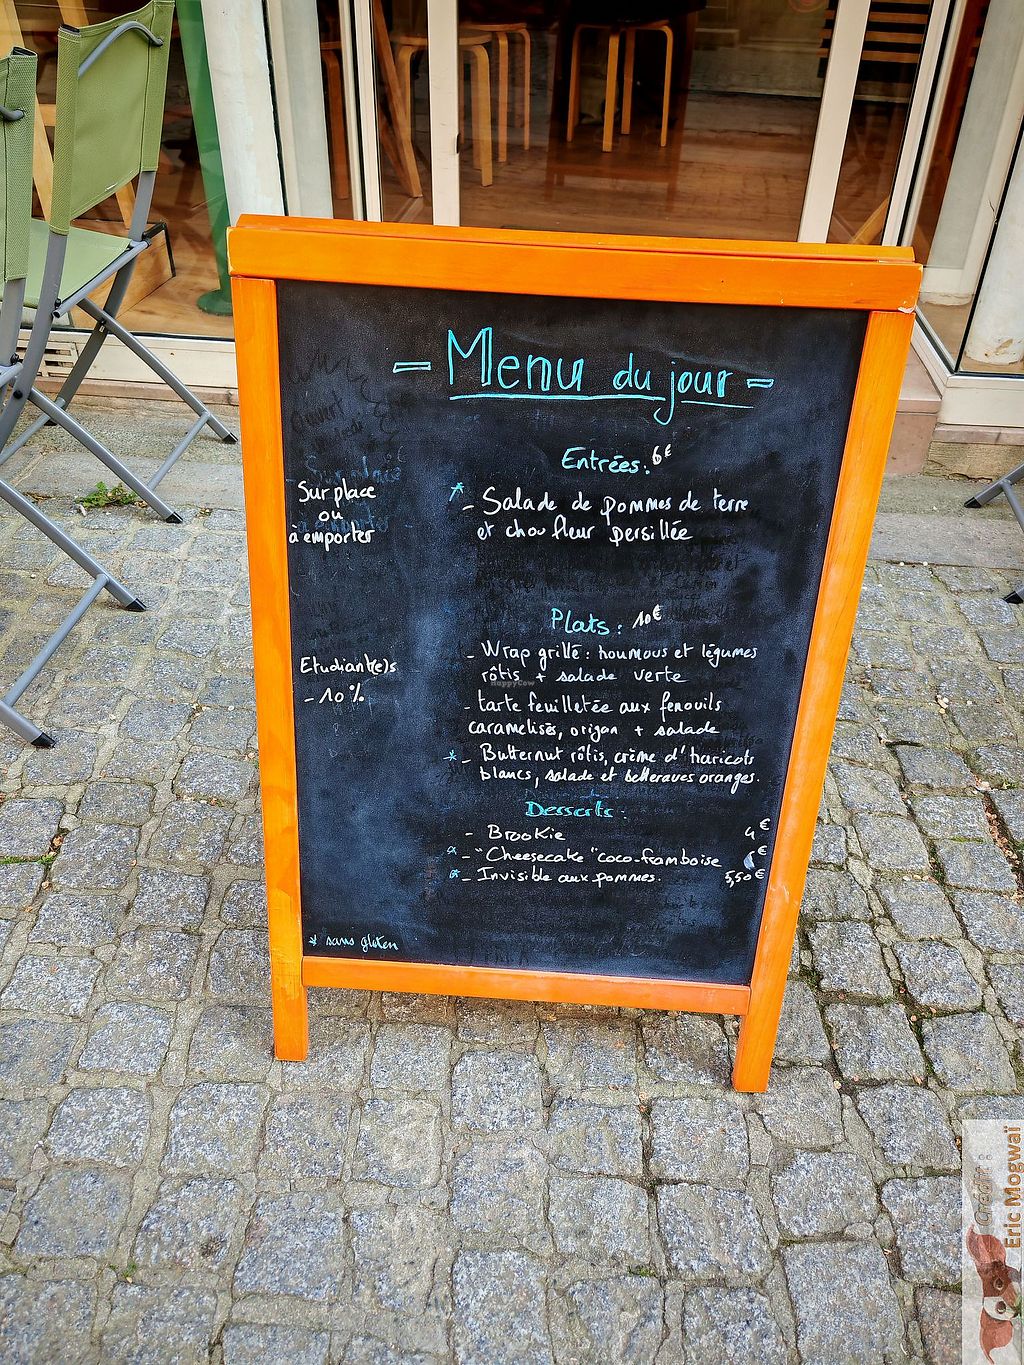 - Menu du jour -
Entrées : 6€
Sur place
ou
à emporter
* - Salade de pommes de terre
et chou fleur persillée
Plats : 10€
Etudiant(e)s
- 10 %
- Wrap grillé : houmous et légumes
rôtis + salade verte
- tarte feuilletée aux fenouils
caramelisés, origan + salade
* - Butternut rôtis, crème d'haricots
blancs, salade et betteraves oranges.
Desserts :
- Brookie 4€
* - "Cheesecake" coco-framboise €
* - Invisible aux pommes. 5,50€
* sans gluten
HappyCow
Crédit :
Eric Mogwaï